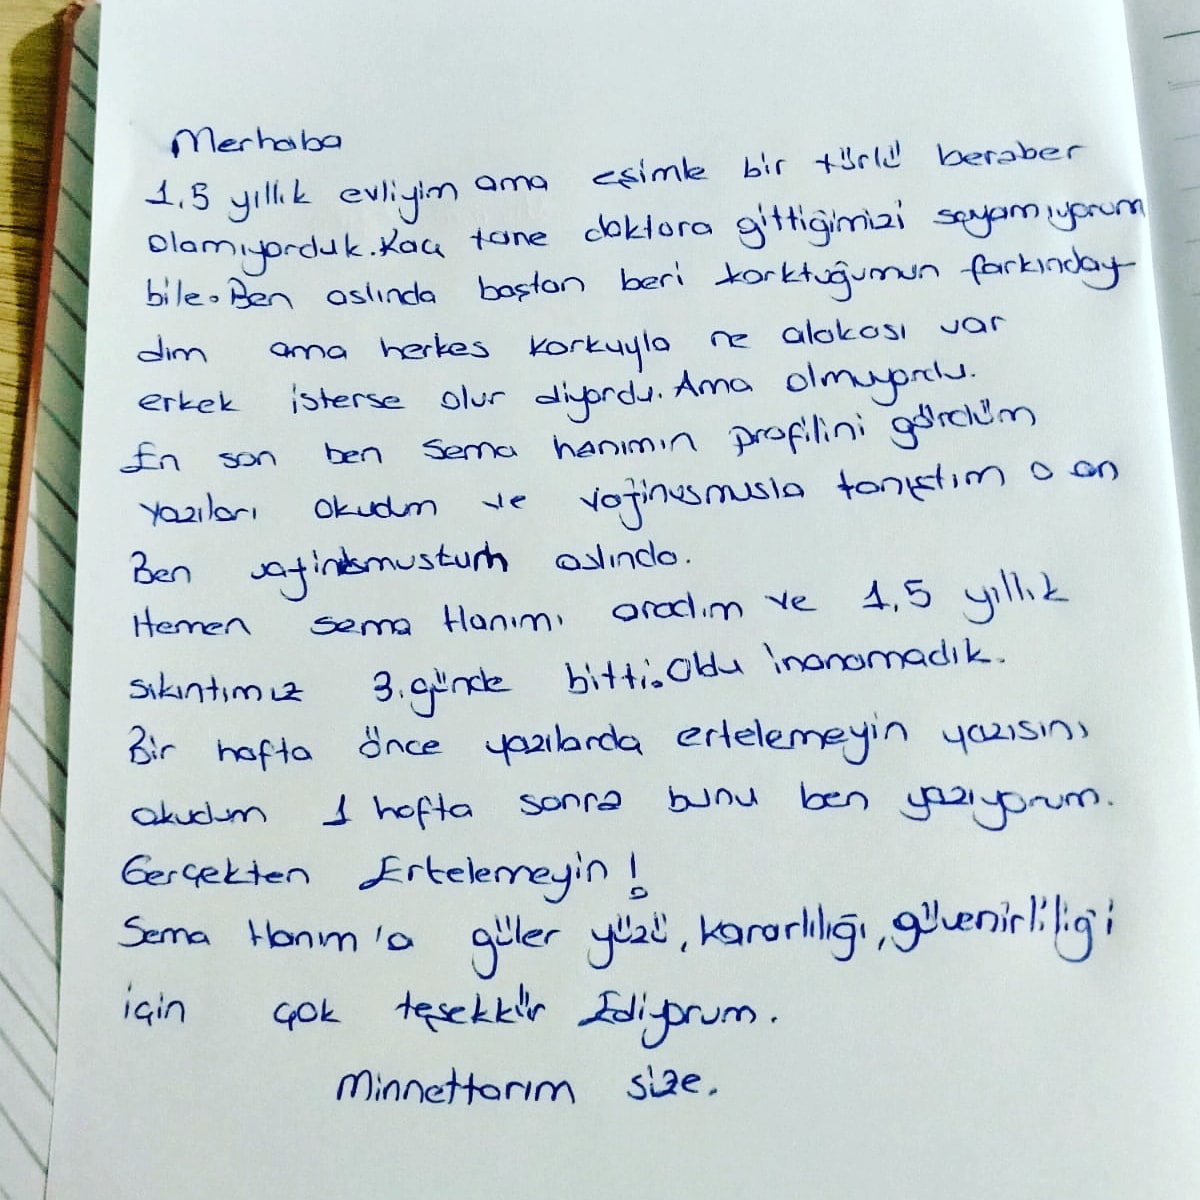 Merhaba
1,5 yıllık evliyim ama eşimle bir türlü beraber
olamıyorduk. Kaç tane doktora gittiğimizi sayamıyorum
bile. Ben aslında baştan beri korktuğumun farkınday
dım ama herkes korkuyla ne alakası var
erkek isterse olur diyordu. Ama olmuyordu.
En son ben Sema hanımın profilini gördüm
yazıları okudum ve vajinusmusla tanıştım o an
Ben vajinismusturm aslında.
Hemen Sema Hanımı aradım ve 1,5 yıllık
sıkıntımız 3. günde bitti. Oldu inanamadık.
Bir hafta önce yazılarda ertelemeyin yazısını
okudum 1 hafta sonra bunu ben yazıyorum.
Gerçekten Ertelemeyin!
Sema Hanım'a güler yüzü, kararlılığı, güvenirliliği
için çok teşekkür Ediyorum.
Minnettarım size.